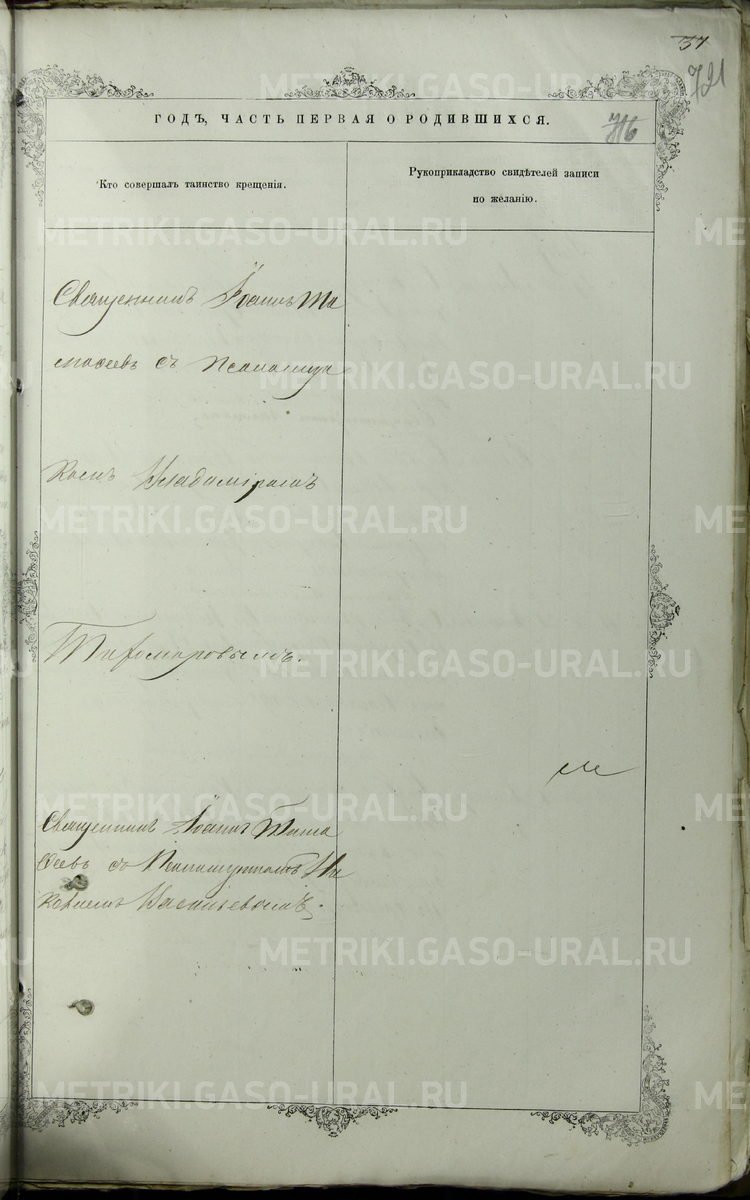 37
721
ГОДЪ, ЧАСТЬ ПЕРВАЯ О РОДИВШИХСЯ.
716
Кто совершалъ таинство крещенія.
Рукоприкладство свидѣтелей записи
по желанію.
Священникъ Іоаннъ Ти
мофеевъ съ Псаломщи
комъ Владиміромъ
Тихомировымъ.
Священникъ Іоаннъ Тимо
феевъ съ Псаломщикомъ Ни
Васильевымъ.
METRIKI.GASO-URAL.RU